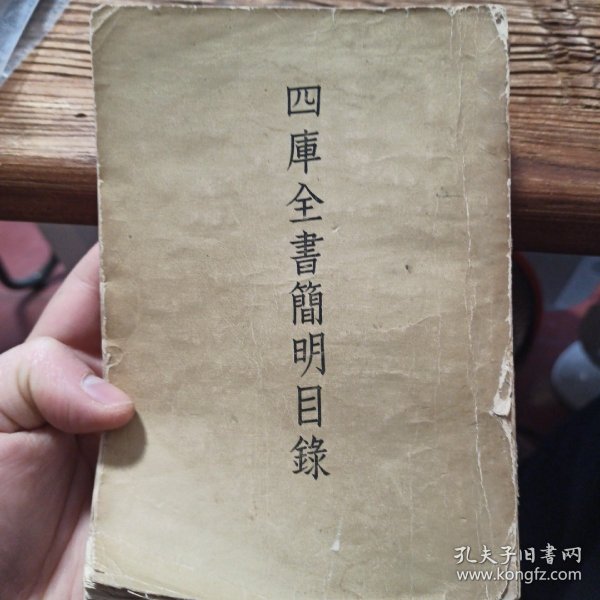 四庫全書簡明目錄
孔夫子旧書网
www.kongfz.com